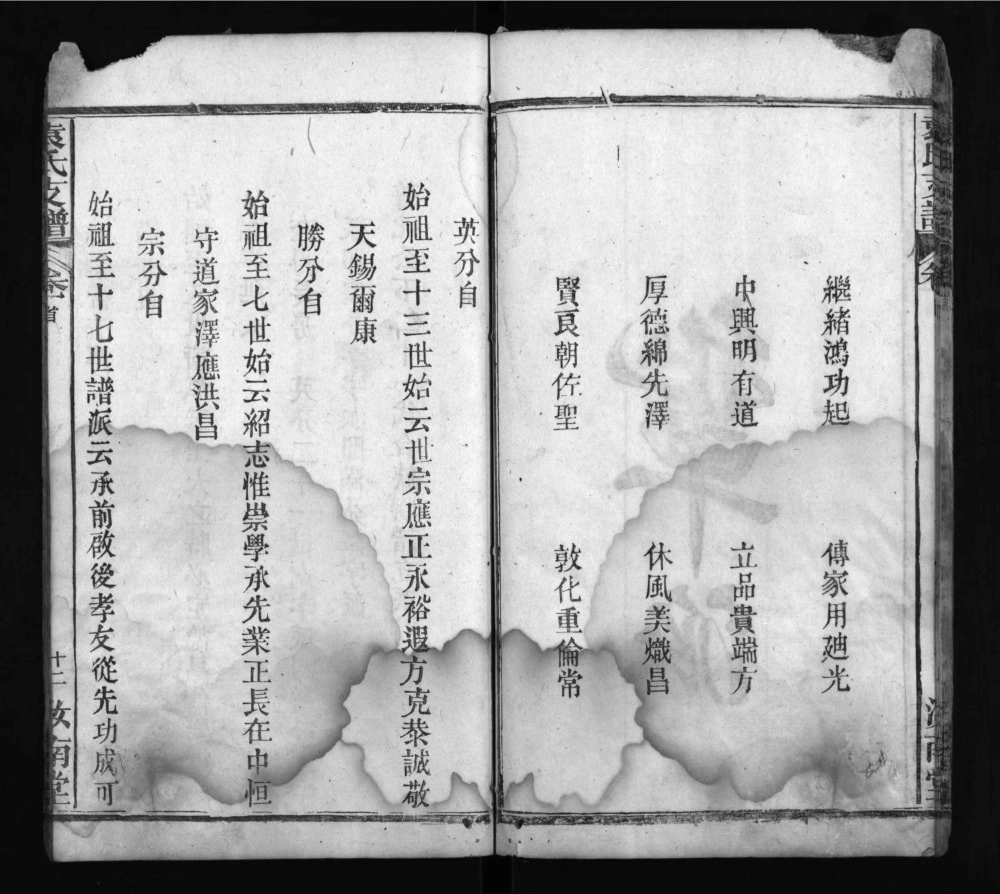 袁氏支譜
繼緒鴻功起 傳家用廸光
中興明有道 立品貴端方
厚德綿先澤 休風美熾昌
賢良朝佐聖 敦化重倫常
英分自
始祖至十三世始云世宗應正永裕遐方克恭誠敬
天錫爾康
勝分自
始祖至七世始云紹志惟崇學承先業正長在中恒
守道家澤應洪昌
宗分自
始祖至十七世譜派云承前啟後孝友從先功成可
袁氏支譜
卷首
十二
汝南堂